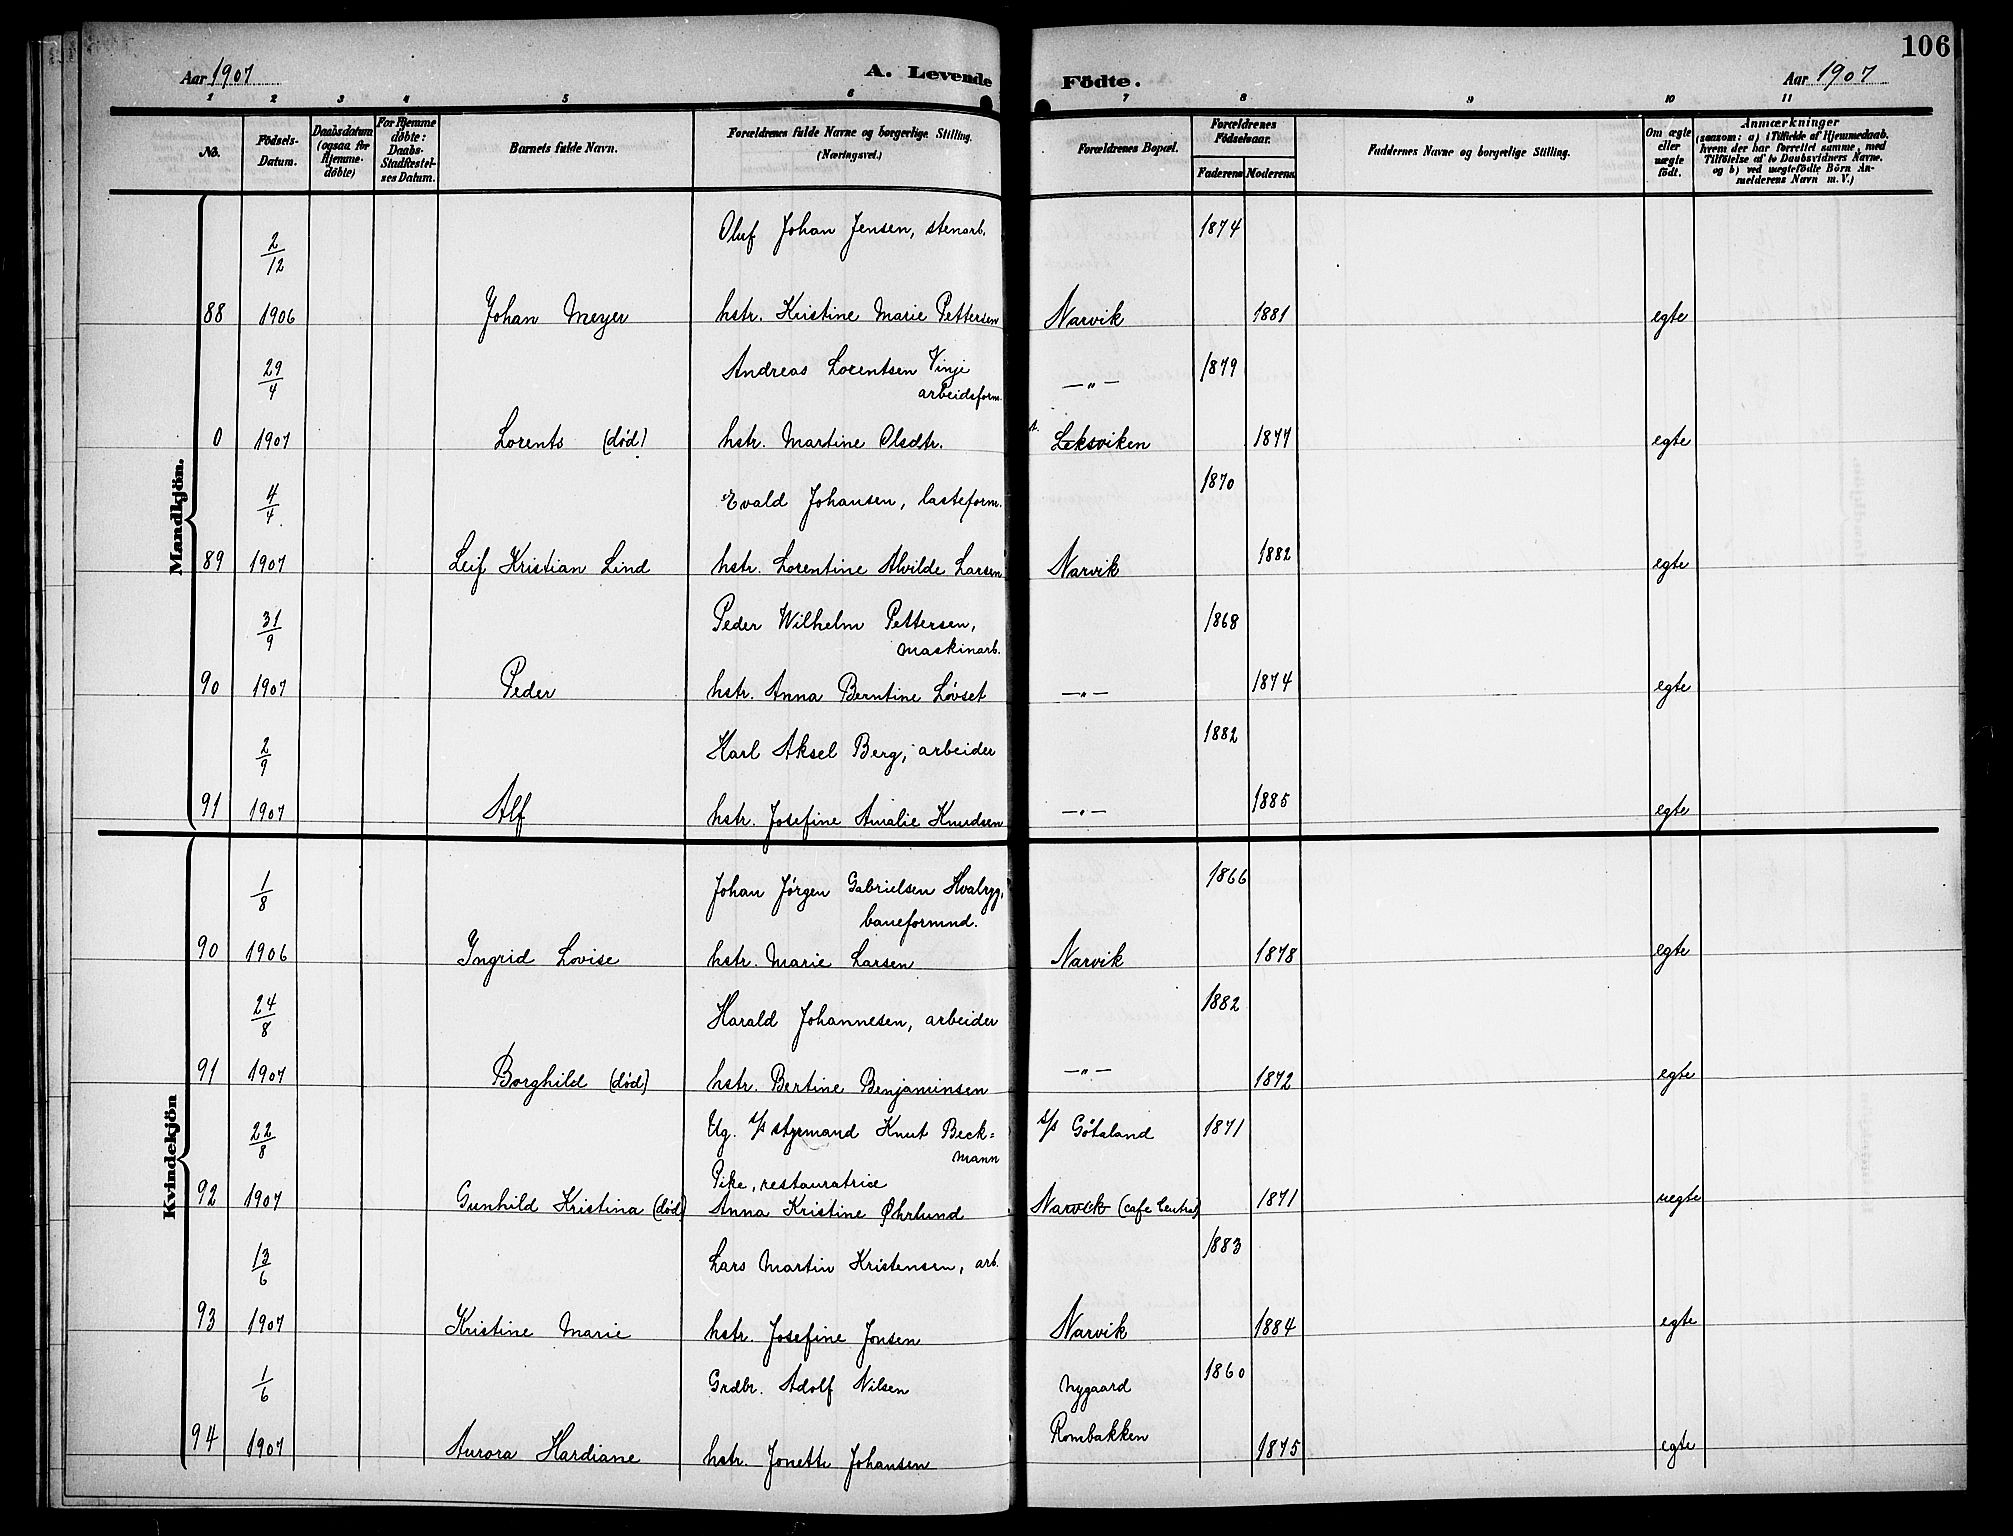 106
Aar 1907 A. Levende Födte. Aar 1907
1 2 3 4 5 6 7 8 9 10 11
No. Födsels-Datum. Daabsdatum (ogsaa for Hjemme-döbte) For Hjemme döbte: Daabs-Stadfæstel-ses Datum. Barnets fulde Navn. Forældrenes fulde Navne og borgerlige Stilling. (Næringsvei.) Forældrenes Bopæl. Forældrenes Födselsaar. Faderens Moderens Faddernes Navne og borgerlige Stilling. Om ægte eller uægte födt. Anmærkninger (saasom: a) i Tilfælde af Hjemmedaab. hvem der har forrettet samme, med Tilföielse af to Daabsvidners Navne, og b) ved uægtefödte Börn An-melderens Navn m. V.)
Mandkjön.
2/12 Oluf Johan Jensen, stenarb. 1874
88 1906 Johan Meyer hstr. Kristine Marie Pettersen Narvik 1881 egte
29/4 Andreas Lorentsen Vinje — „ — 1879
arbeidsform.
0 1907 Lorents (død) hstr. Martine Olsdtr. Leksviken 1877 egte
4/4 Evald Johansen, lasteform. 1870
89 1907 Leif Kristian Lind hstr. Lorentine Alvilde Larsen Narvik 1882 egte
31/9 Peder Wilhelm Pettersen, 1868
maskinarb.
90 1907 Peder hstr. Anna Berntine Løvset — „ — 1874 egte
2/9 Karl Aksel Berg, arbeider 1882
91 1907 Alf hstr. Josefine Amalie Knudsen — „ — 1885 egte
Kvindekjön
1/8 Johan Jørgen Gabrielsen Hvalryg, 1866
baneformnd.
90 1906 Ingrid Lovise hstr. Marie Larsen Narvik 1878 egte
24/8 Harald Johannesen, arbeider 1882
91 1907 Borghild (død) hstr. Bertine Benjaminsen — „ — 1872 egte
22/8 Ug. s/s styrmand Knut Beck= s/s Götaland 1871
mann
Pike, restauratrice
92 1907 Gunhild Kristina (død) Anna Kristine Øhrlund Narvik (cafe Central) 1871 uegte
13/6 Lars Martin Kristensen, arb. 1883
93 1907 Kristine Marie hstr. Josefine Jonsen Narvik 1884 egte
1/6 Grdbr. Adolf Nilsen Nygaard 1860
94 1907 Aurora Hardiane hstr. Jonette Johansen Rombakken 1875 egte